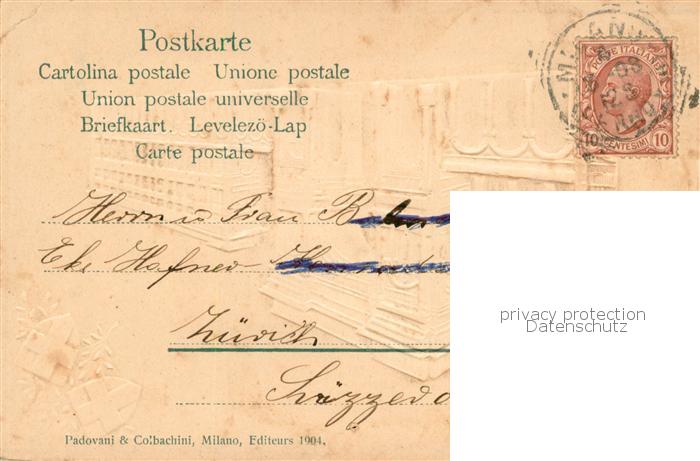 Postkarte
Cartolina postale Unione postale
Union postale universelle
Briefkaart. Levelezö-Lap
Carte postale
MILANO
POSTE ITALIANE
10 CENTESIMI 10
Herrn u Frau B
Eke Hafner
privacy protection
Datenschutz
Zürich
Padovani & Colbachini, Milano, Editeurs 1904.